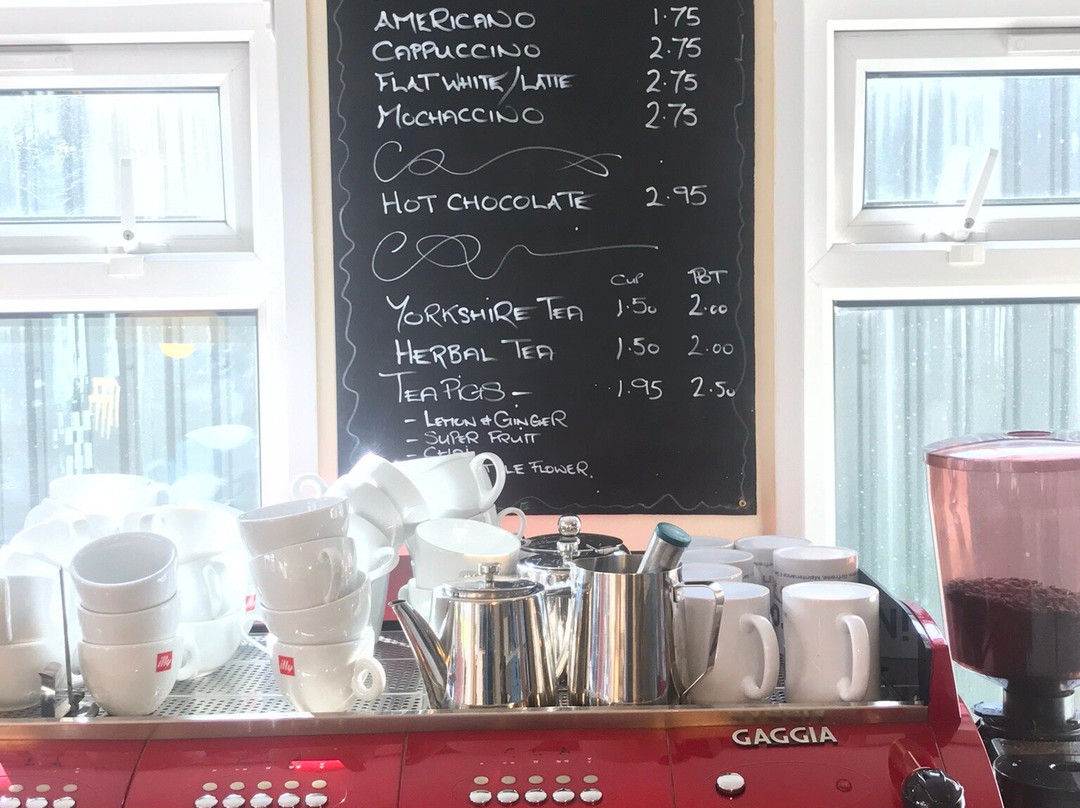 AMERICANO 1.75
CAPPUCCINO 2.75
FLAT WHITE/LATTE 2.75
MOCHACCINO 2.75
HOT CHOCOLATE 2.95
CUP POT
YORKSHIRE TEA 1.50 2.00
HERBAL TEA 1.50 2.00
TEA PIGS - 1.95 2.50
- LEMON & GINGER
- SUPER FRUIT
- CHAI
FLOWER.
illy
illy
GAGGIA